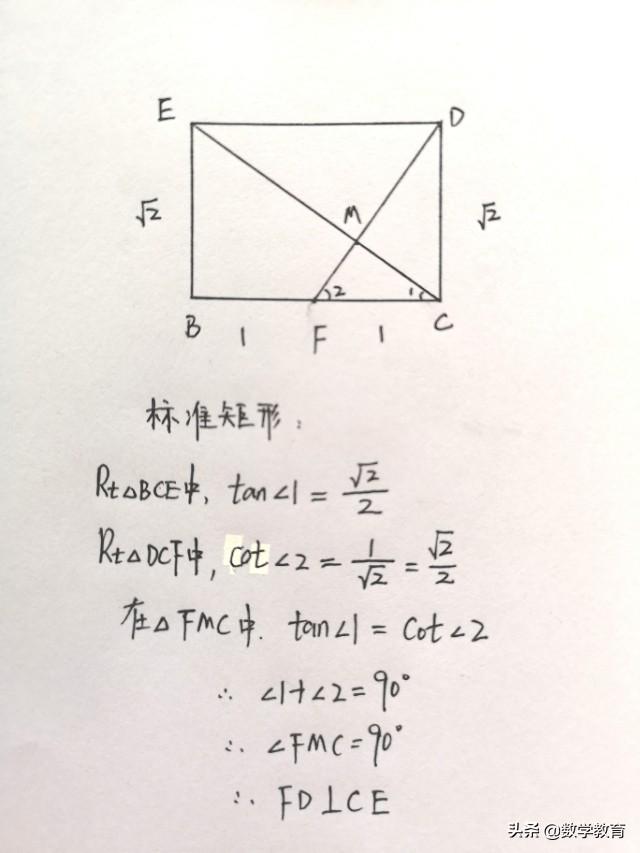 E D
√2 M √2
2 1
B 1 F 1 C
标准矩形:
Rt△BCE中, tan∠1 = √2/2
Rt△DCF中, cot∠2 = 1/√2 = √2/2
在△FMC中. tan∠1 = cot∠2
∴ ∠1+∠2=90°
∴ ∠FMC=90°
∴ FD⊥CE
头条 @数学教育